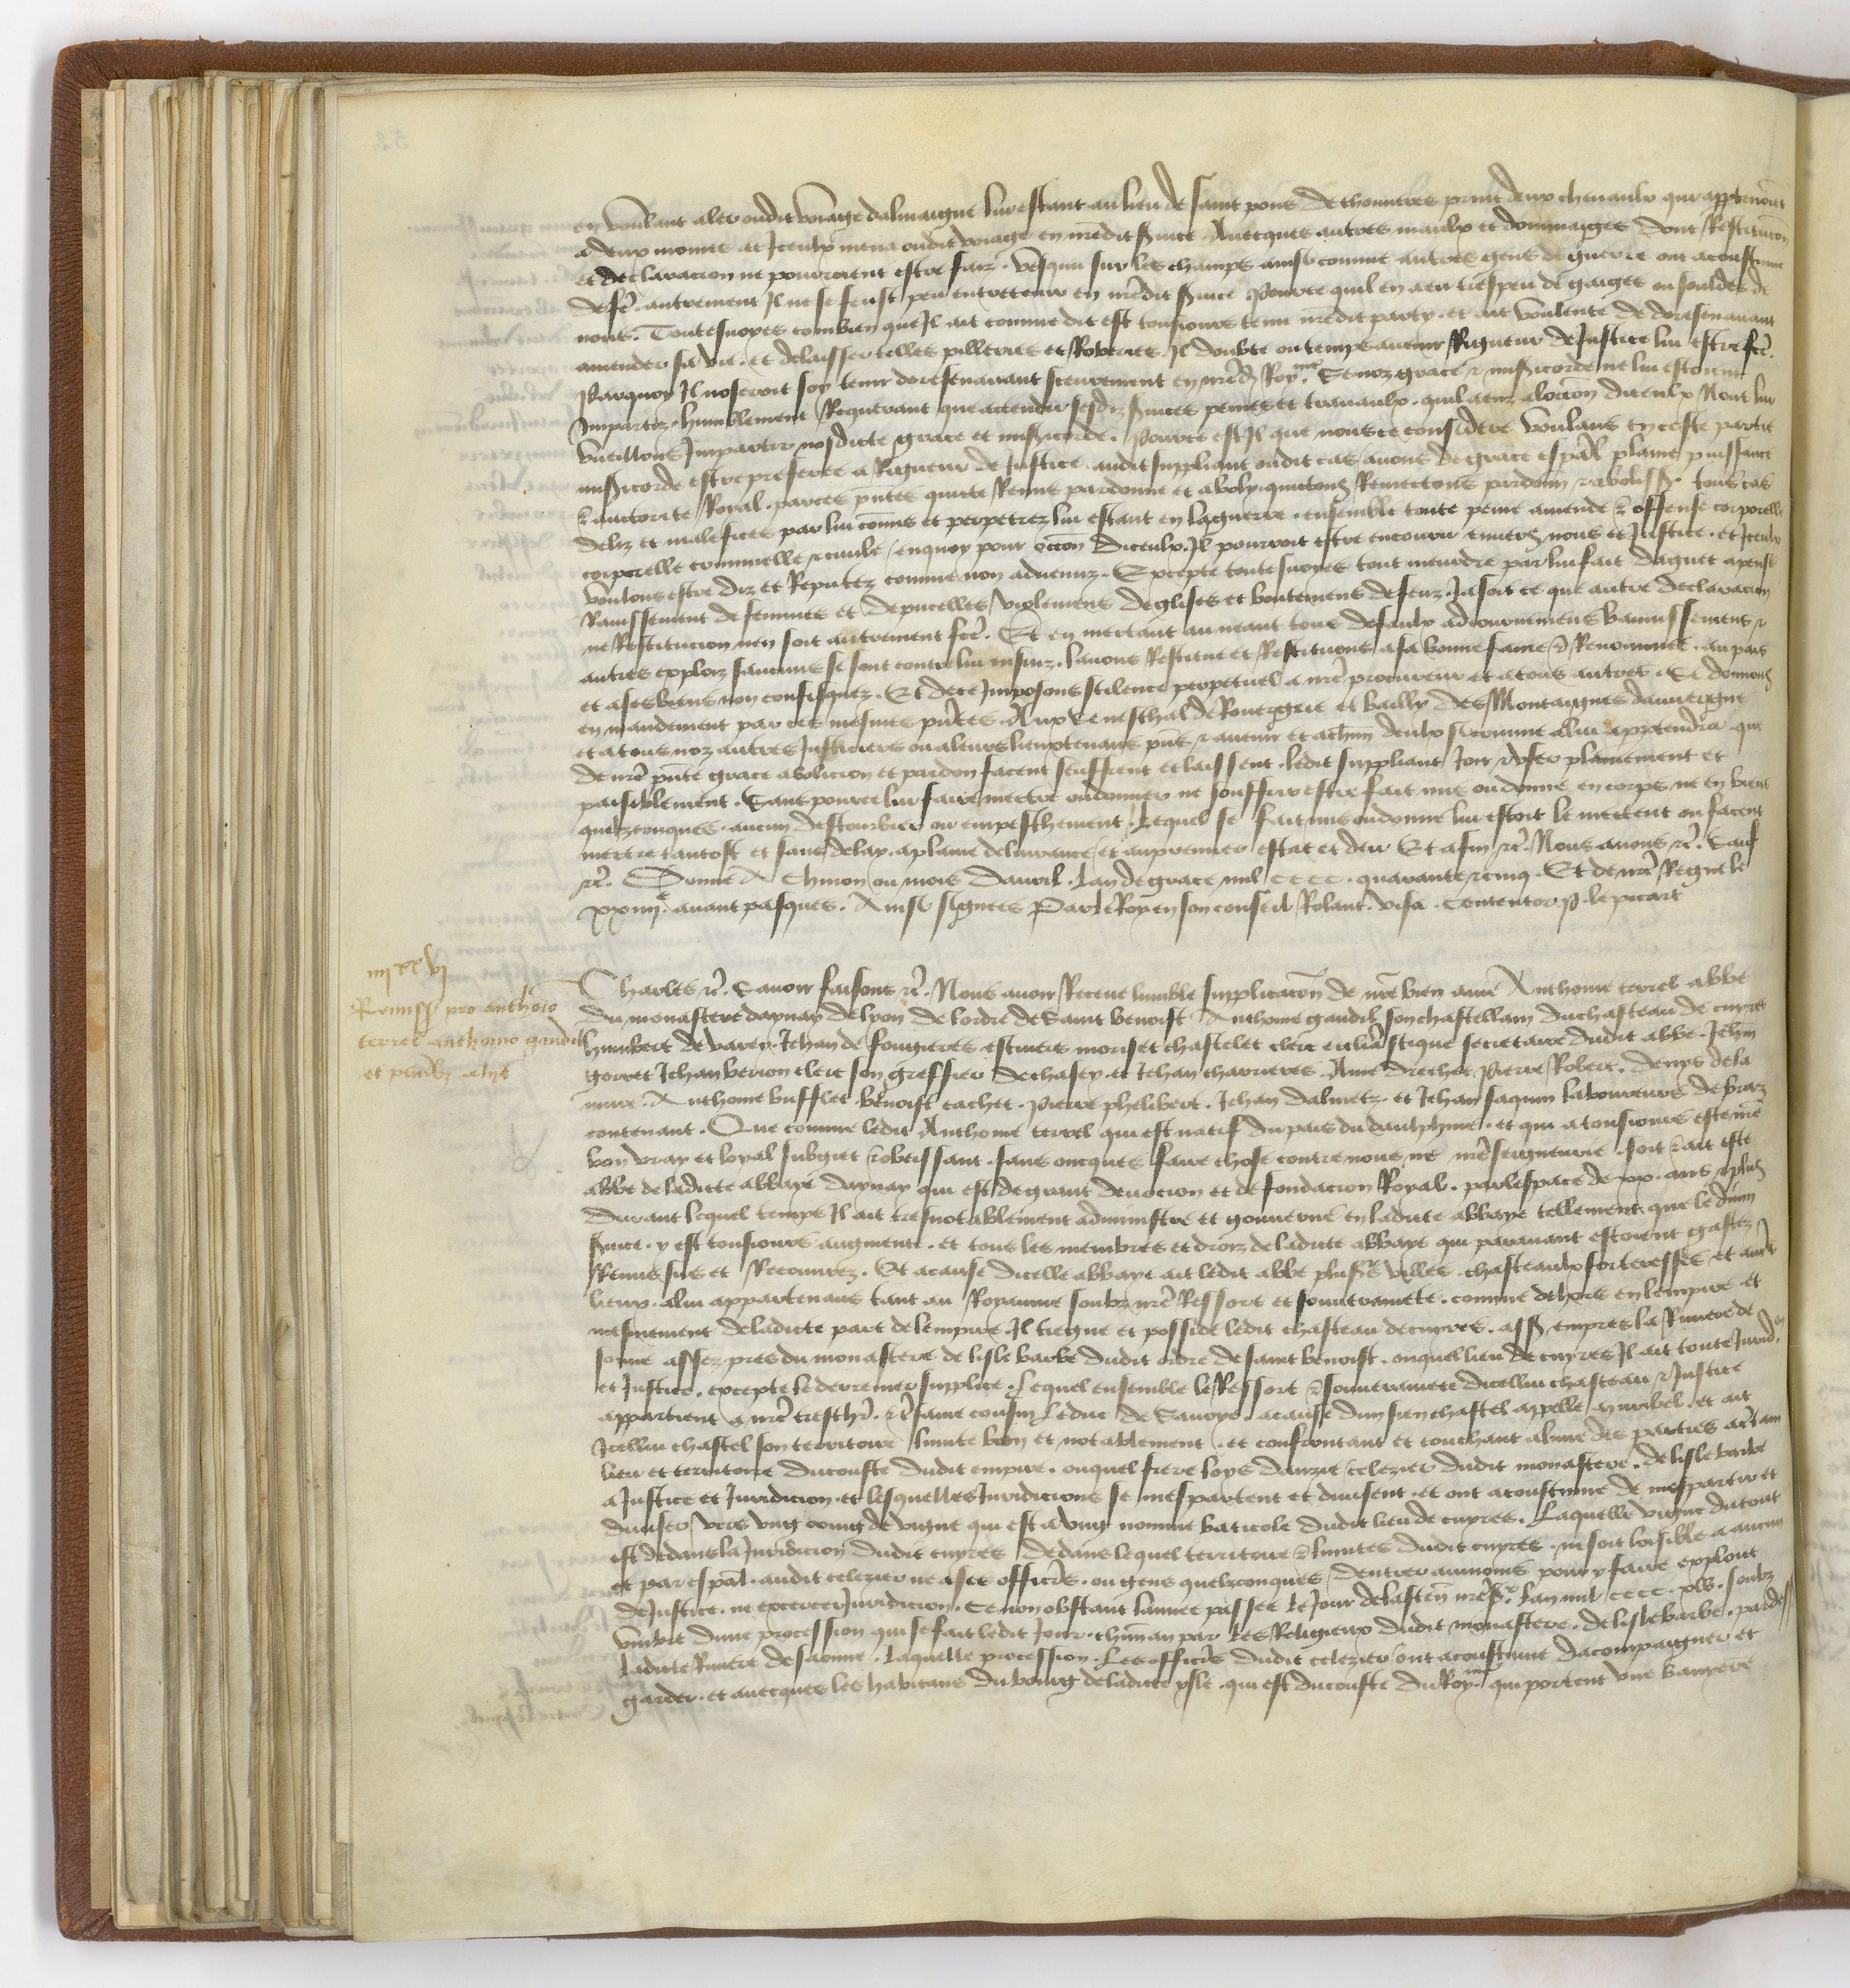 en voulant aler oudit voiage dalmaigne lui estant au lieu de saint pons de thonneres print deux chevaulx qui appartenoient
a deux moines et Iceulx mena oudit voiage en nredit service Avecques autres maulx et dommaiges dont Restitucion
et declaracion ne pourroient estre faiz. vesqui sur les champs ainsi comme autres gens de guerre ont acoustume
de fe. autrement Il ne se feust peu entretenir en nredit service Pource quil en a eu tres peu de gaiges ou souldes de
nous. Toutesvoyes combien que Il ait comme dit est tousiours tenu nredit party. et ait voulente de doresenavant
amender sa vie. et delaisser telles pilleries et Roberies Il doubte ou temps avenir Rigueur de Justice lui estre fce.
Parquoy Il noseroit soy tenir doresenavant seurement en nred Royme Se noz grace & misericorde ne lui estoient
Imparties. humblement Requerant que attendu sesdiz services peines et travaulx. quil a euz a loccion diceulx Nous lui
vueillons Impartir nosdicte grace et misericorde. Pource est Il que nous ce considere voulans en ceste partie
misericorde estre preferee a Rigueur de Justice audit suppliant oudit cas avons de grace espal plaine puissance
& auctorite Royal. par ces pntes quicte Remis pardonne et aboly. quictons Remectons pardonn & aboliss. tous cas
deliz et malefices par lui comis et perpetrez lui estant en la guerre. ensemble toute peine amende & offense corporelle
corporelle criminelle & civile enquoy pour occon diceulx Il pourroit estre encouru envers nous et Justice. et Iceulx
voulons estre diz et Reputez comme non advenuz. Excepte toutesvoyes tout meurdre par lui fait daguet apense
Ravissement de femmes et de pucelles violemens deglises et boutemens de feuz. Ja soit ce que autre declaracion
ne Restitucion nen soit autrement fce. Et en mectant au neant tous defaulx adiournemens bannissemens &
autres exploiz saucuns se sont contre lui ensuiz. lavons Restitue et Restituons a sa bonne fame & Renommee. au pais
et a ses biens non confisquez. Et de ce Imposons silence perpetuel a nre procureur et a tous autres. Si donnons
en mandement par ces mesmes pntes. Aux Seneschal de Rouergue et bailly des Montaignes dauvergne
et a tous noz autres Justiciers ou a leurs lieuxtenans pns & avenir et a chun deulx si comme a lui appartendra que
de nre pnte grace abolicion et pardon facent seuffrent et laissent. ledit suppliant Joir & user plainement et
paisiblement. Sans pource lui faire mectre ou donner ne souffrir estre fait mis ou donne en corps ne en biens
quelzconques. aucun destourbier ou empeschement. Lequel se fait mis ou donne lui estoit le mectent ou facent
mectre tantost et sans delay. a plaine delivrance et au premier estat et deu Et afin &c. Nous avons &c. Sauf
&c. Donne A Chinon ou mois Davril. Lan de grace mil CCCC. quarante & cinq. Et de nre Regne le
xxiiiie. avant pasques. Ainsi signees Par le Roy en son conseil Rolant. visa. Contentor P. le picart
iiii xx vi
Remiss pro anthonio
terrel anthonio gaudil
et pluribus aliis
Charles &c. Savoir faisons &c. Nous avoir Receue lumble supplicacion de nre bien ame Anthoine terrel abbe
du monastere daynay de lyon de lordre de Saint benoist Anthoine gaudil son chastellain du chasteau de cuyres
humbert de varey. Jehan de fougieres escuiers moriset chastelet clerc ecclesiastique secretaire dudit abbe. Jehan
gorret Jehan verion clerc son greffier de chasey. et Jehan charrieres. Ame drechet. Pierre Robert. denys de la
mure. Anthoine bufflet. benoist cachet. Pierre phelibert. Jehan dalmetz. et Jehan saquin laboureurs de braz
contenant. Que comme ledit Anthoine terrel qui est natif du pais du daulphine. et qui a tousiours este nre
bon vray et loyal subgiet & obeissant. sans oncques faire chose contre nous ne nre seigneurie. soit & ait este
abbe de ladicte abbaye daynay qui est de grant devocion et de fondacion Royal. par lespace de xx. ans & plus
durant lequel temps Il ait tresnotablement administre et gouverne en ladicte abbaye tellement que le divin
service. y est tousiours augmente. et tous les membres et droiz de ladicte abbaye qui paravant estoient gastez
Remis sus et Recouvrez. Et a cause dicelle abbaye ait ledit abbe plusrs villes. chasteaulx forteresses et autres
lieux. a lui appartenans tant au Royaume soubz nre Ressort et souverainete. comme dehors en lempire et
mesmement de ladicte part de lempire. Il tiegne et posside ledit chasteau de cuyres. assis empres la Riviere de
sonne assez pres du monastere de lisle barbe dudit ordre de saint benoist. ouquel lieu de cuyres Il ait toute Jurid.on
et Justice. excepte le derrenier supplice. Lequel ensemble le Ressort & souverainete dicellui chasteau & Justice
appartient a nre treschr. & tresame cousin Leduc de Savoye. a cause dun sien chastel appelle myribel. et ait
Icellui chastel son territoire limite bon et notablement. et confrontant et touchant a lune des parties
lieu et territoire du couste dudit empire. ouquel frere loys danzie celezier dudit monastere. de lisle barbe
a Justice et Juridicion. et lesquelles Juridicions se mespartent et divisent. et ont acoustume de mespartir et
diviser vers ung coing de vigne qui est a ung nomme baticole dudit lieu de cuyres. Laquelle vigne du tout
est dedans la Juridicion dudit cuyres dedans lequel territoire & limites dudit cuyres. ne soit loisible a aucun
et par espal. audit celezier ne a ses officiers. ou gens quelzconques dentrer aumoins pour y faire exploict
de Justice. ne exercer Juridicion. Ce non obstant lannee passee le Jour de lascen nre Sr. Lan mil CCCC. xlv. soubz
umbre dune procession qui se fait ledit Jour. chun an par les Religieux dudit monastere. de lislebarbe. par dess
ladicte Riviere de saonne. Laquelle procession. Les officiers dudit celezier ont acoustume dacompaigner et
garder. et avecques les habitans du bourg de ladicte ysle. qui est du couste du Royme qui portent une banyere